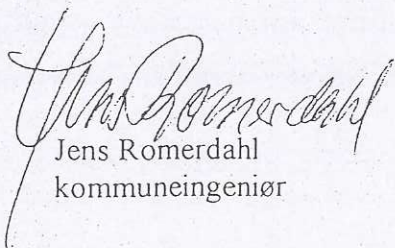 Jens Romerdahl
Jens Romerdahl
kommuneingeniør